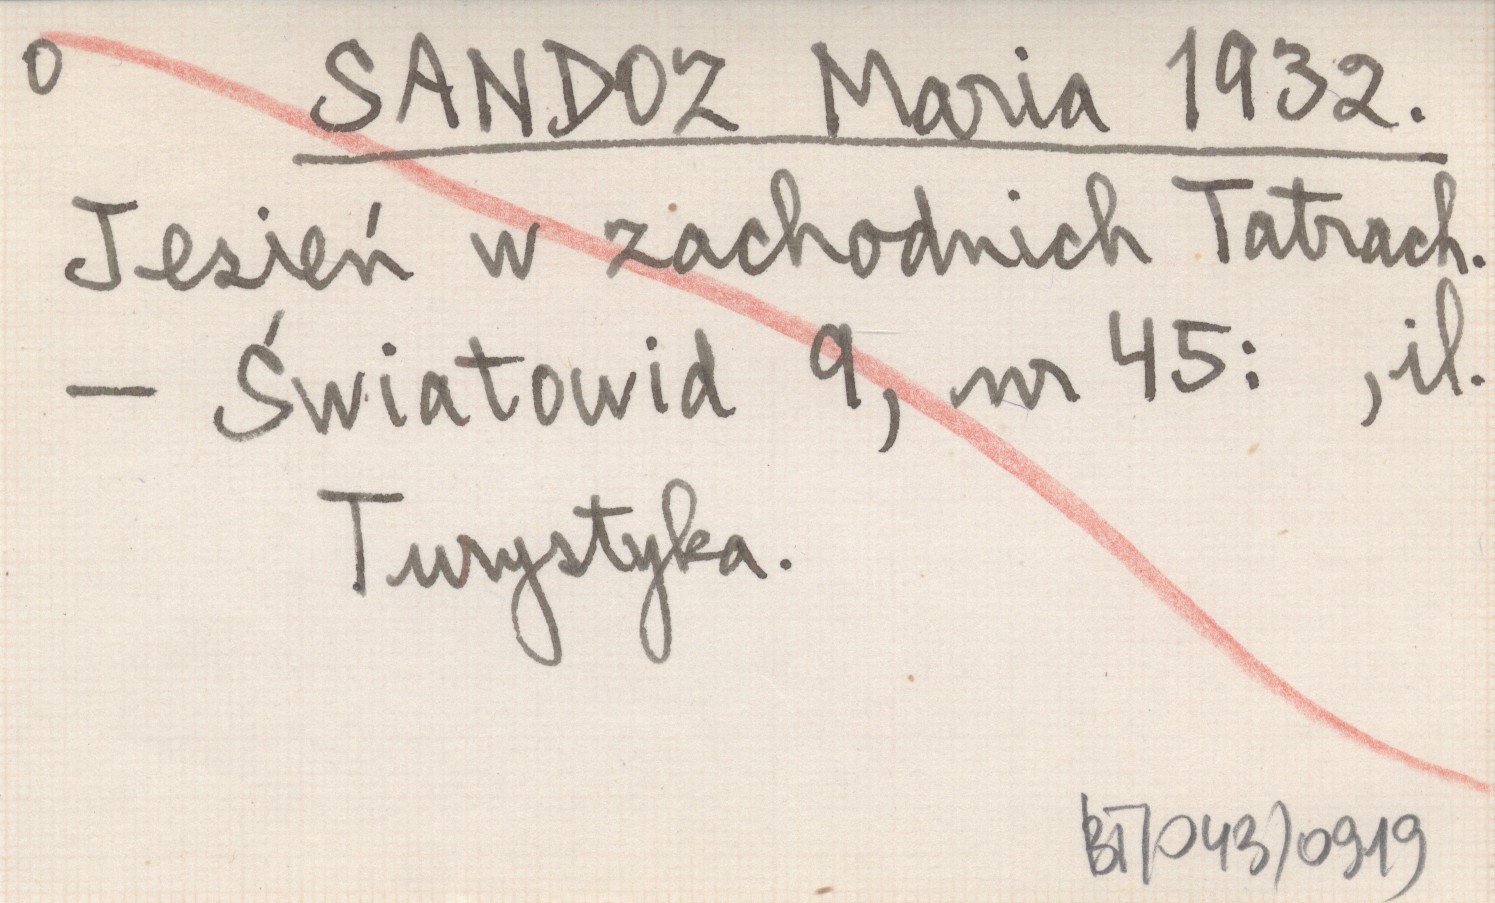 o SANDOZ Maria 1932.
Jesień w zachodnich Tatrach.
— Światowid 9, nr 45: , il.
Turystyka.
BT/043/0919